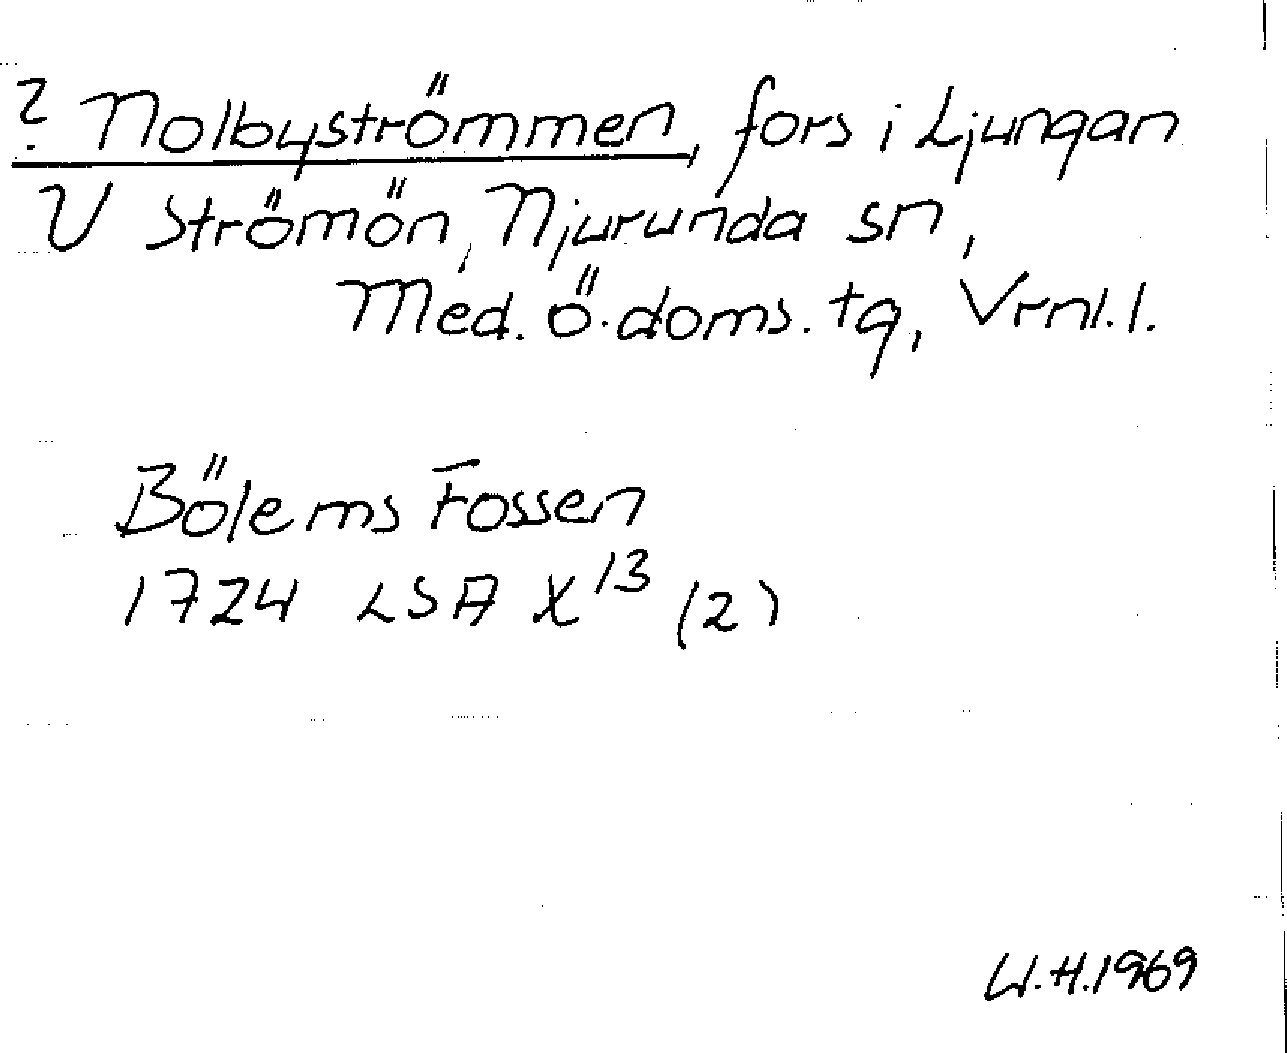 ? Nolbyströmmen, fors i Ljungan
V Strömön, Njurunda sn,
Med. ö. doms. tg, Vrnl. l.
Bölems Fossen
1724 LSA X¹³ (2)
W.H. 1969